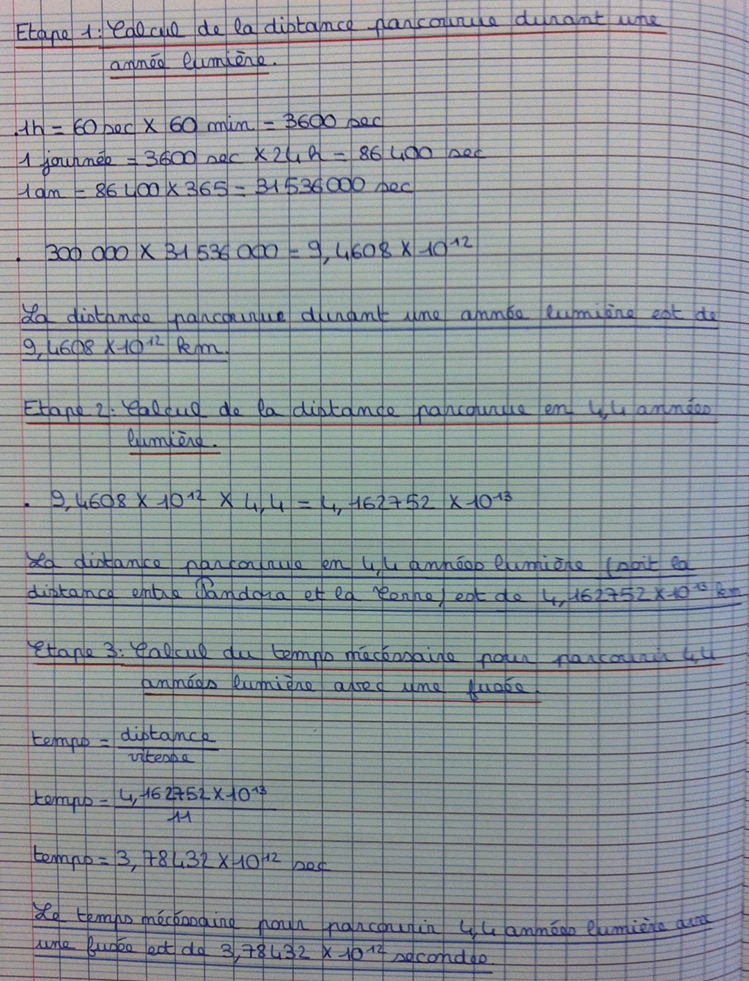 Etape 1: Calcul de la distance parcourue durant une
année lumière.
1h = 60 sec X 60 min = 3600 sec
1 journée = 3600 sec X 24 h = 86 400 sec
1 an = 86 400 X 365 = 31 536 000 sec
. 300 000 X 31 536 000 = 9,4608 X 10¹²
La distance parcourue durant une année lumière est de
9,4608 X 10¹² km.
Etape 2: Calcul de la distance parcourue en 4,4 années
lumière.
. 9,4608 X 10¹² X 4,4 = 4,162752 X 10¹³
La distance parcourue en 4,4 années lumière (soit la
distance entre Pandora et la Terre) est de 4,162752 X 10¹³ km
Etape 3: Calcul du temps nécéssaire pour parcourir 4,4
années lumière avec une fusée.
temps = distance
vitesse
temps = 4,162752 X 10¹³
11
temps = 3,78432 X 10¹² sec
Le temps nécéssaire pour parcourir 4,4 années lumière avec
une fusée est de 3,78432 X 10¹² secondes